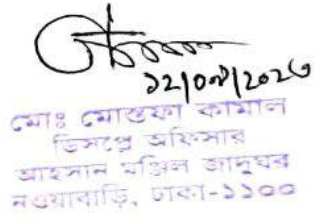 ১২/০৮/২০২৩
মোঃ মোস্তফা কামাল
ডিসপ্লে অফিসার
আহসান মঞ্জিল জাদুঘর
নওয়াবাড়ি, ঢাকা-১১০০